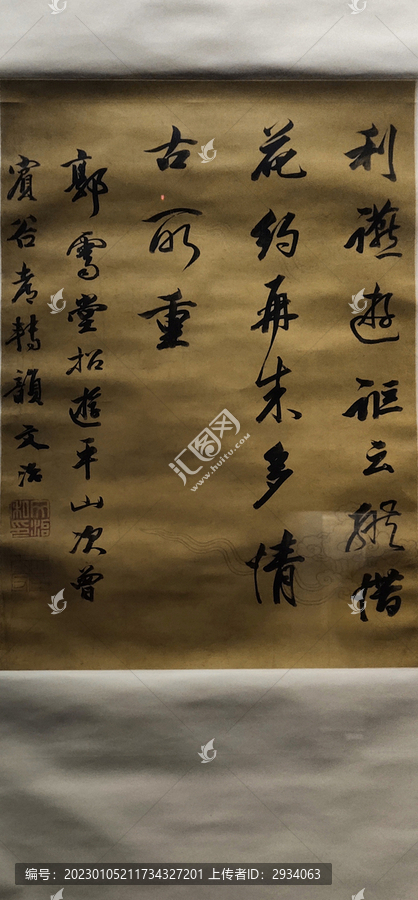 利讌遊詎云縱惜
花約再来多情
古所重
郭堂招遊平山次曾
賓谷都轉韻文治
汇图网
www.huitu.com
编号：20230105211734327201 上传者ID：2934063